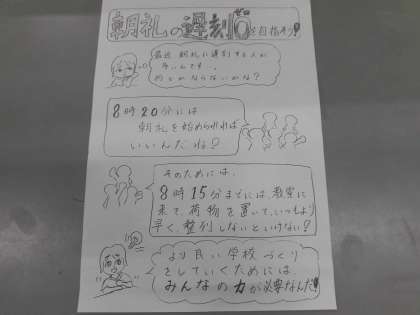 朝礼の遅刻0ゼロを目指そう!
最近 朝礼に遅刻する人が
多いんです…。
何とかならないかな?
8時20分には
朝礼を始められれば
いいんだね?
そのためには、
8時15分までには、教室に
来て、荷物を置いて、いつもより
早く、整列しないといけない?
より良い学校づくり
をしていくためには、
みんなの力が必要なんだ!